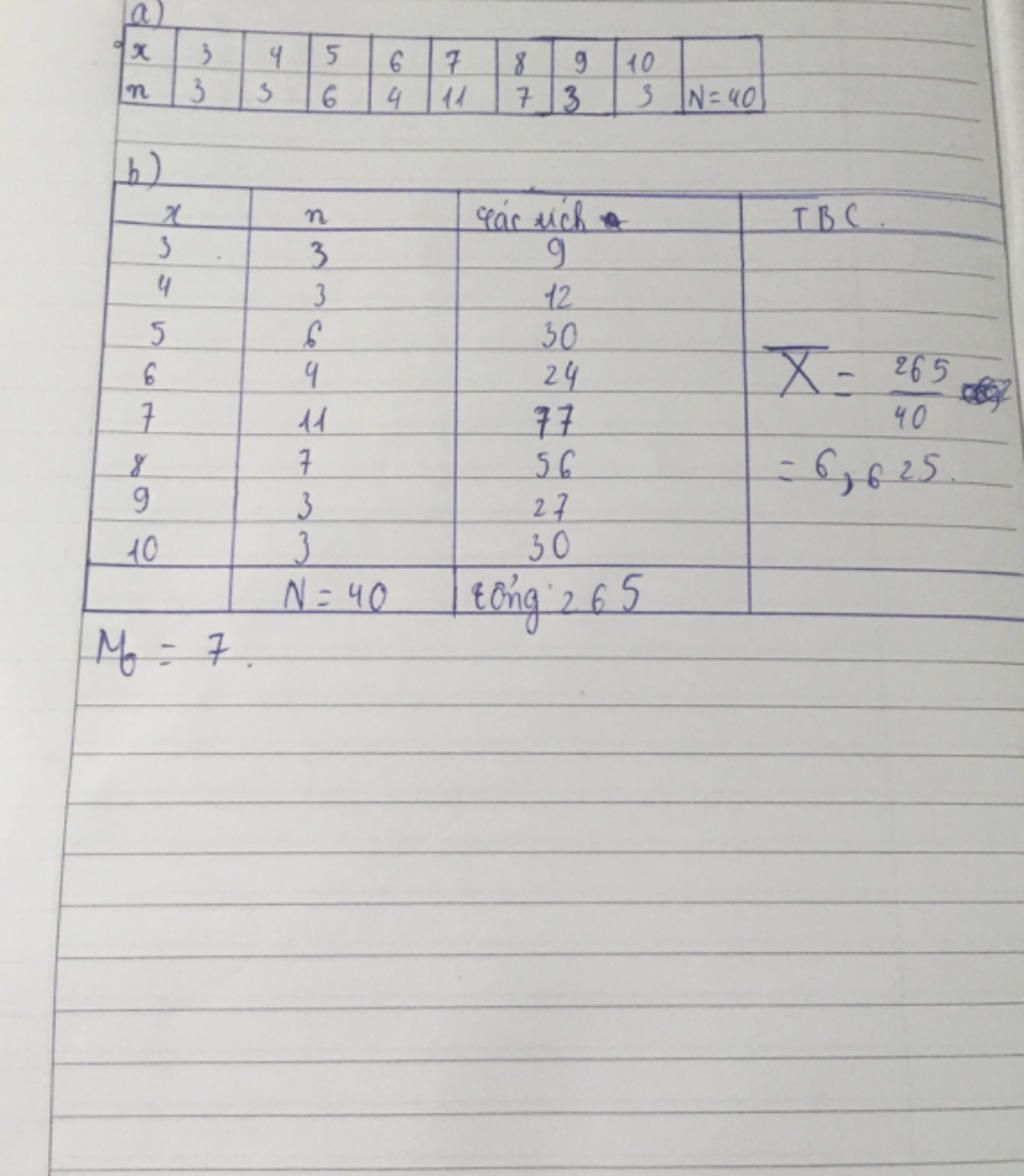 a)
x 3 4 5 6 7 8 9 10
n 3 3 6 4 11 7 3 3 N=40
b)
x n các tích TBC.
3 3 9
4 3 12
5 6 30
6 4 24 X̅ = 265/40
7 11 77
8 7 56 = 6,625.
9 3 27
10 3 30
N = 40 tổng: 265
M₀ = 7.